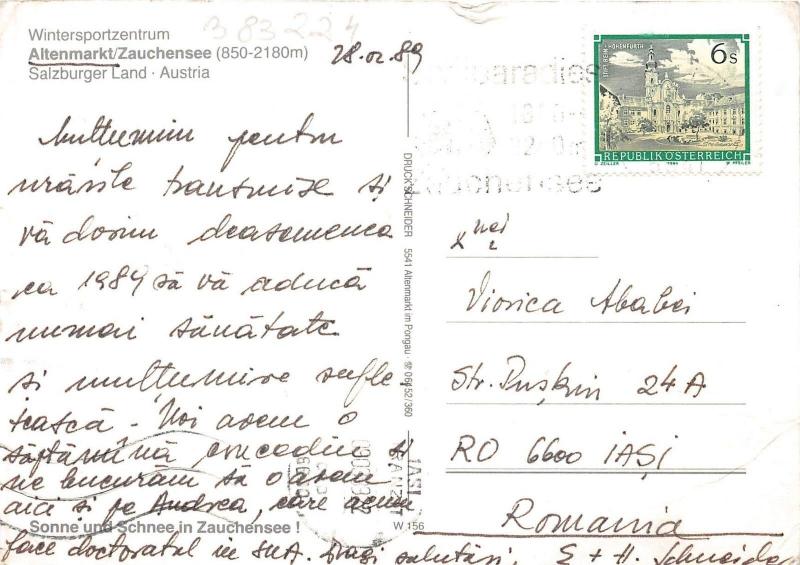 383224
Wintersportzentrum
Altenmarkt/Zauchensee (850-2180m)
Salzburger Land · Austria
28.02.89
Multumim pentru
urările transmise și
vă dorim deasemenea
ca 1989 să vă aducă
numai sănătate
si multumire sufle
tească. Noi avem o
săptămînă concediu si
ne bucurăm să o avem
aici si pe Andrea, care acum
face doctoratul in SUA. Dragi salutări, E + H. Schneider
Sonne und Schnee in Zauchensee !
DRUCK SCHNEIDER 5541 Altenmarkt im Pongau ☎ 06452/360
W 156
STIFT REIN-HOHENFURTH
6s
REPUBLIK ÖSTERREICH
O. ZEILLER 1984 W. PFEILER
IAȘI
Viorica Ababei
Str. Pușkin 24A
RO 6600 IAȘI
Romania